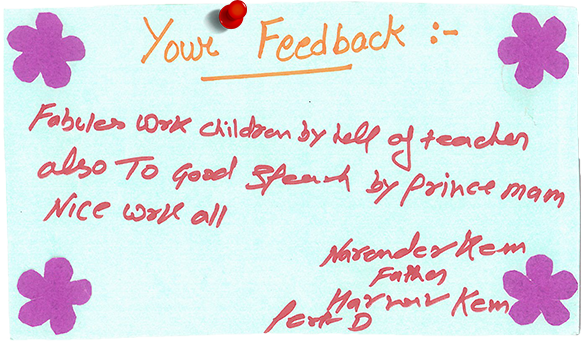 Your Feedback :-
Fabules work children by help of teacher
also To Good Speach by prince mam
Nice work all
Narender Kem
Father
Kem
D